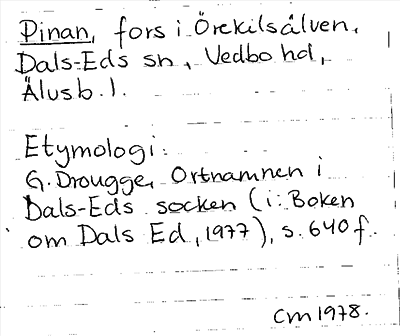 Pinan, fors i Örekilsälven,
Dals-Eds sn, Vedbo hd,
Älvsb. l.
Etymologi:
G. Drougge, Ortnamnen i
Dals-Eds socken (i: Boken
om Dals Ed, 1977), s. 640 f.
CM 1978.